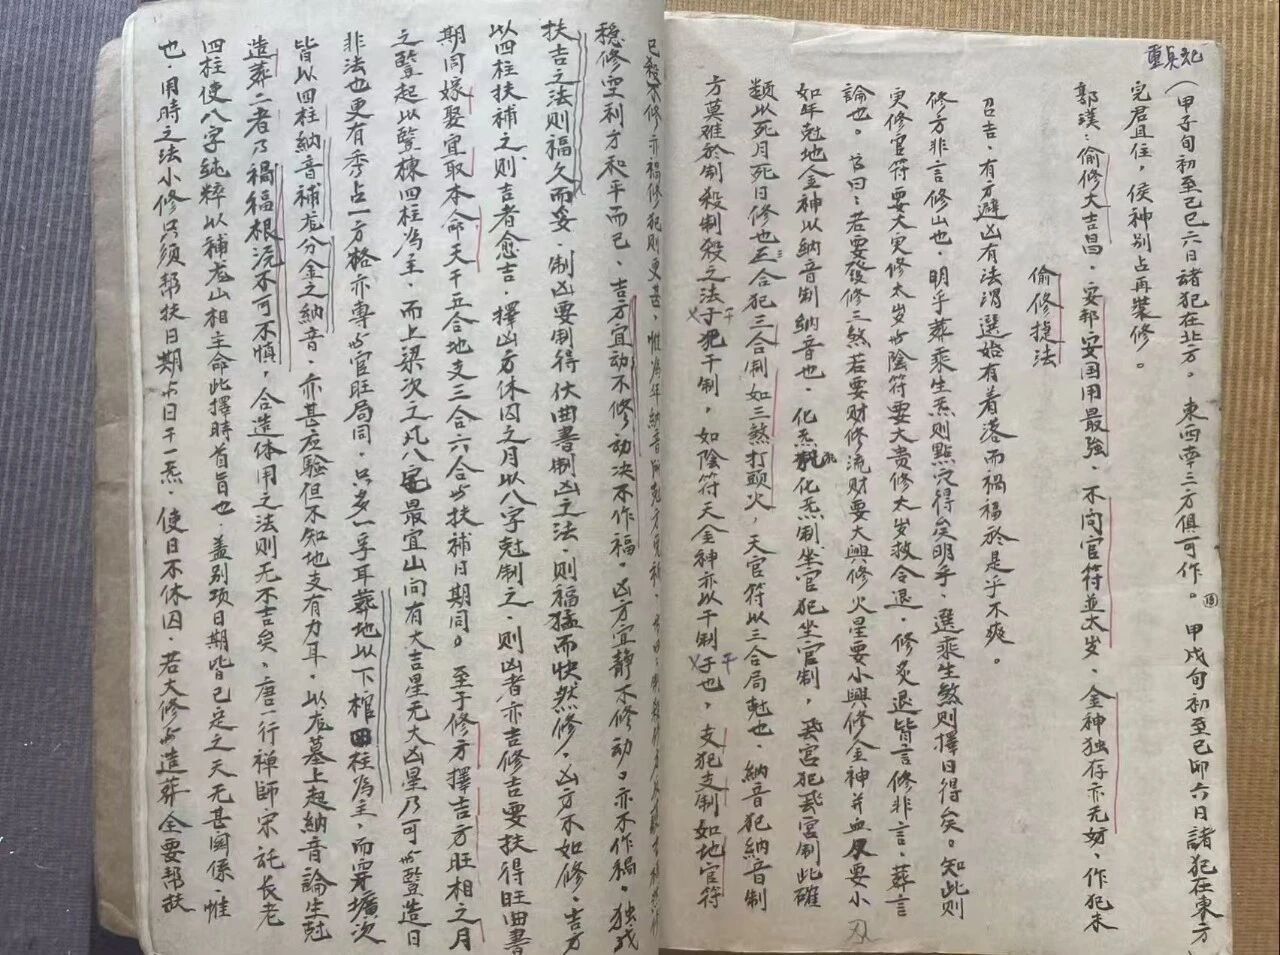 重兵紀
(甲子旬初至己巳六日諸犯在北方。東西南三方俱可作。⑱甲戌旬初至己卯六日諸犯在東方
完君且住,侯神别占再裝修。
郭璞:偷修大吉昌,安邦安国用最強,不问官符並太岁,金神独存亦无妨,作犯未
偷修捷法
召吉,有方避凶有法谓選始有着落而禍福於是乎不爽。
修方非言修山也,明乎葬乘生炁則點穴得矣明乎,選乘生煞則擇日得矣。知此則
実修官符要大実修太岁与陰符要大贵修太岁救令退,修炙退皆言修非言,葬言
論也。古曰:若要發修三煞若要财修流财要大興修火星要小興修金神并血尿要小
如年尅地金神以納音制納音也,化炁犯化炁制坐官犯坐官制,飛宮犯飛宮制此確
類以死月死日修也三合犯三合制如三煞打頭火,天官符以三合局尅也,納音犯納音制
方莫难於制殺制殺之法子干犯干制,如陰符天金神亦以干制子干也,支犯支制如地官符
穩修空利方和平而已,吉方宜動不修動决不作福,凶方宜静不修动。亦不作禍,独我
扶吉之法則福久而妥,制凶要制得伏曲書制凶之法,則福猛而快然修,凶方不如修,吉方
以四柱扶補之,則吉者愈吉,擇凶方休囚之月以八字尅制之,則凶者亦吉修吉要扶得旺曲書
期同嫁娶宜取本命天干五合地支三合六合与扶補日期同。至于修方擇吉方旺相之月
之豎起以豎棟四柱為主,而上梁次之凡八字最宜山向有大吉星无大凶星乃可与豎造日
非法也更有秀占一方格亦專与官旺局同,只多一孚耳葬地以下棺四柱為主,而穿壙次
皆以四柱納音補龙分金之納音,亦甚应驗但不知地支有力耳,以龙墓上起納音論生尅
造葬二者乃禍福根沅不可不慎,合造体用之法則无不吉矣,唐一行禅師宋託長老
四柱使八字純粹以補龙山相主命此擇時首旨也,盖别项日期皆已定之天无甚関係,惟
也用時之法小修只须帮扶日期与日干一炁,使日不休囚,若大修与造葬全要帮扶